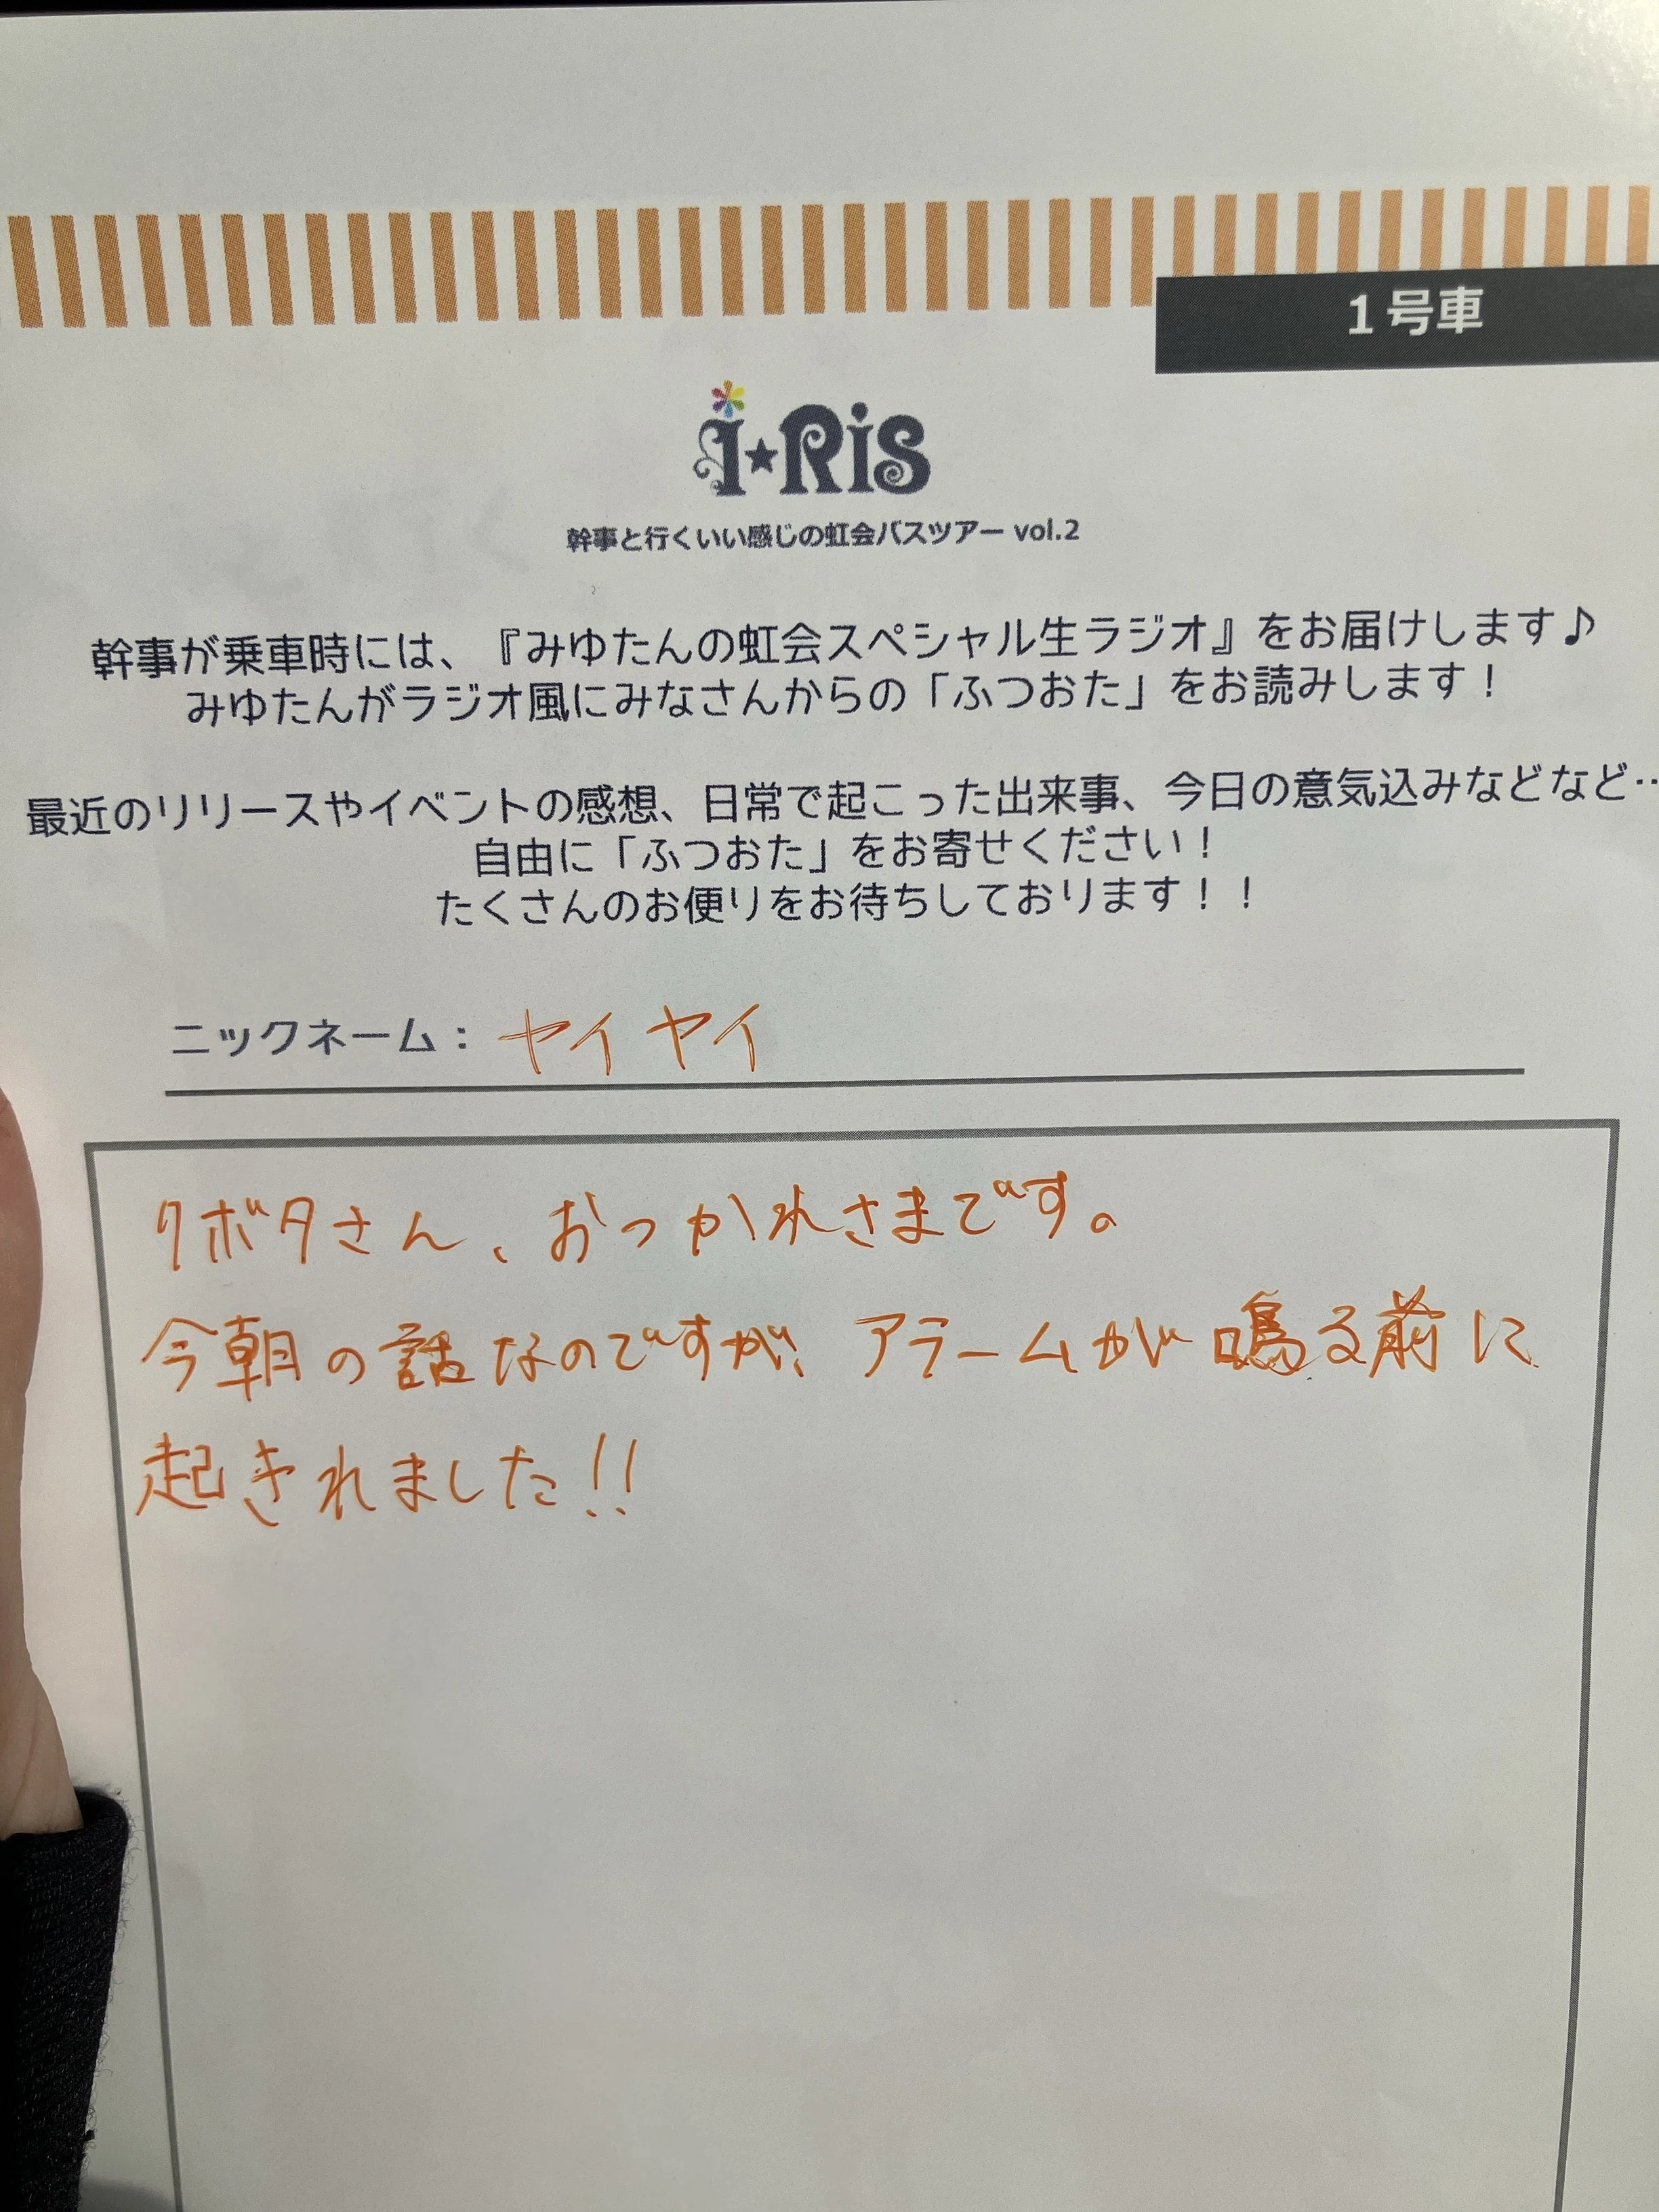 1号車
i★Ris
幹事と行くいい感じの虹会バスツアー vol.2
幹事が乗車時には、『みゆたんの虹会スペシャル生ラジオ』をお届けします♪
みゆたんがラジオ風にみなさんからの「ふつおた」をお読みします！
最近のリリースやイベントの感想、日常で起こった出来事、今日の意気込みなどなど…
自由に「ふつおた」をお寄せください！
たくさんのお便りをお待ちしております！！
ニックネーム：ヤイヤイ
クボタさん、おつかれさまです。
今朝の話なのですが、アラームが鳴る前に
起きれました!!